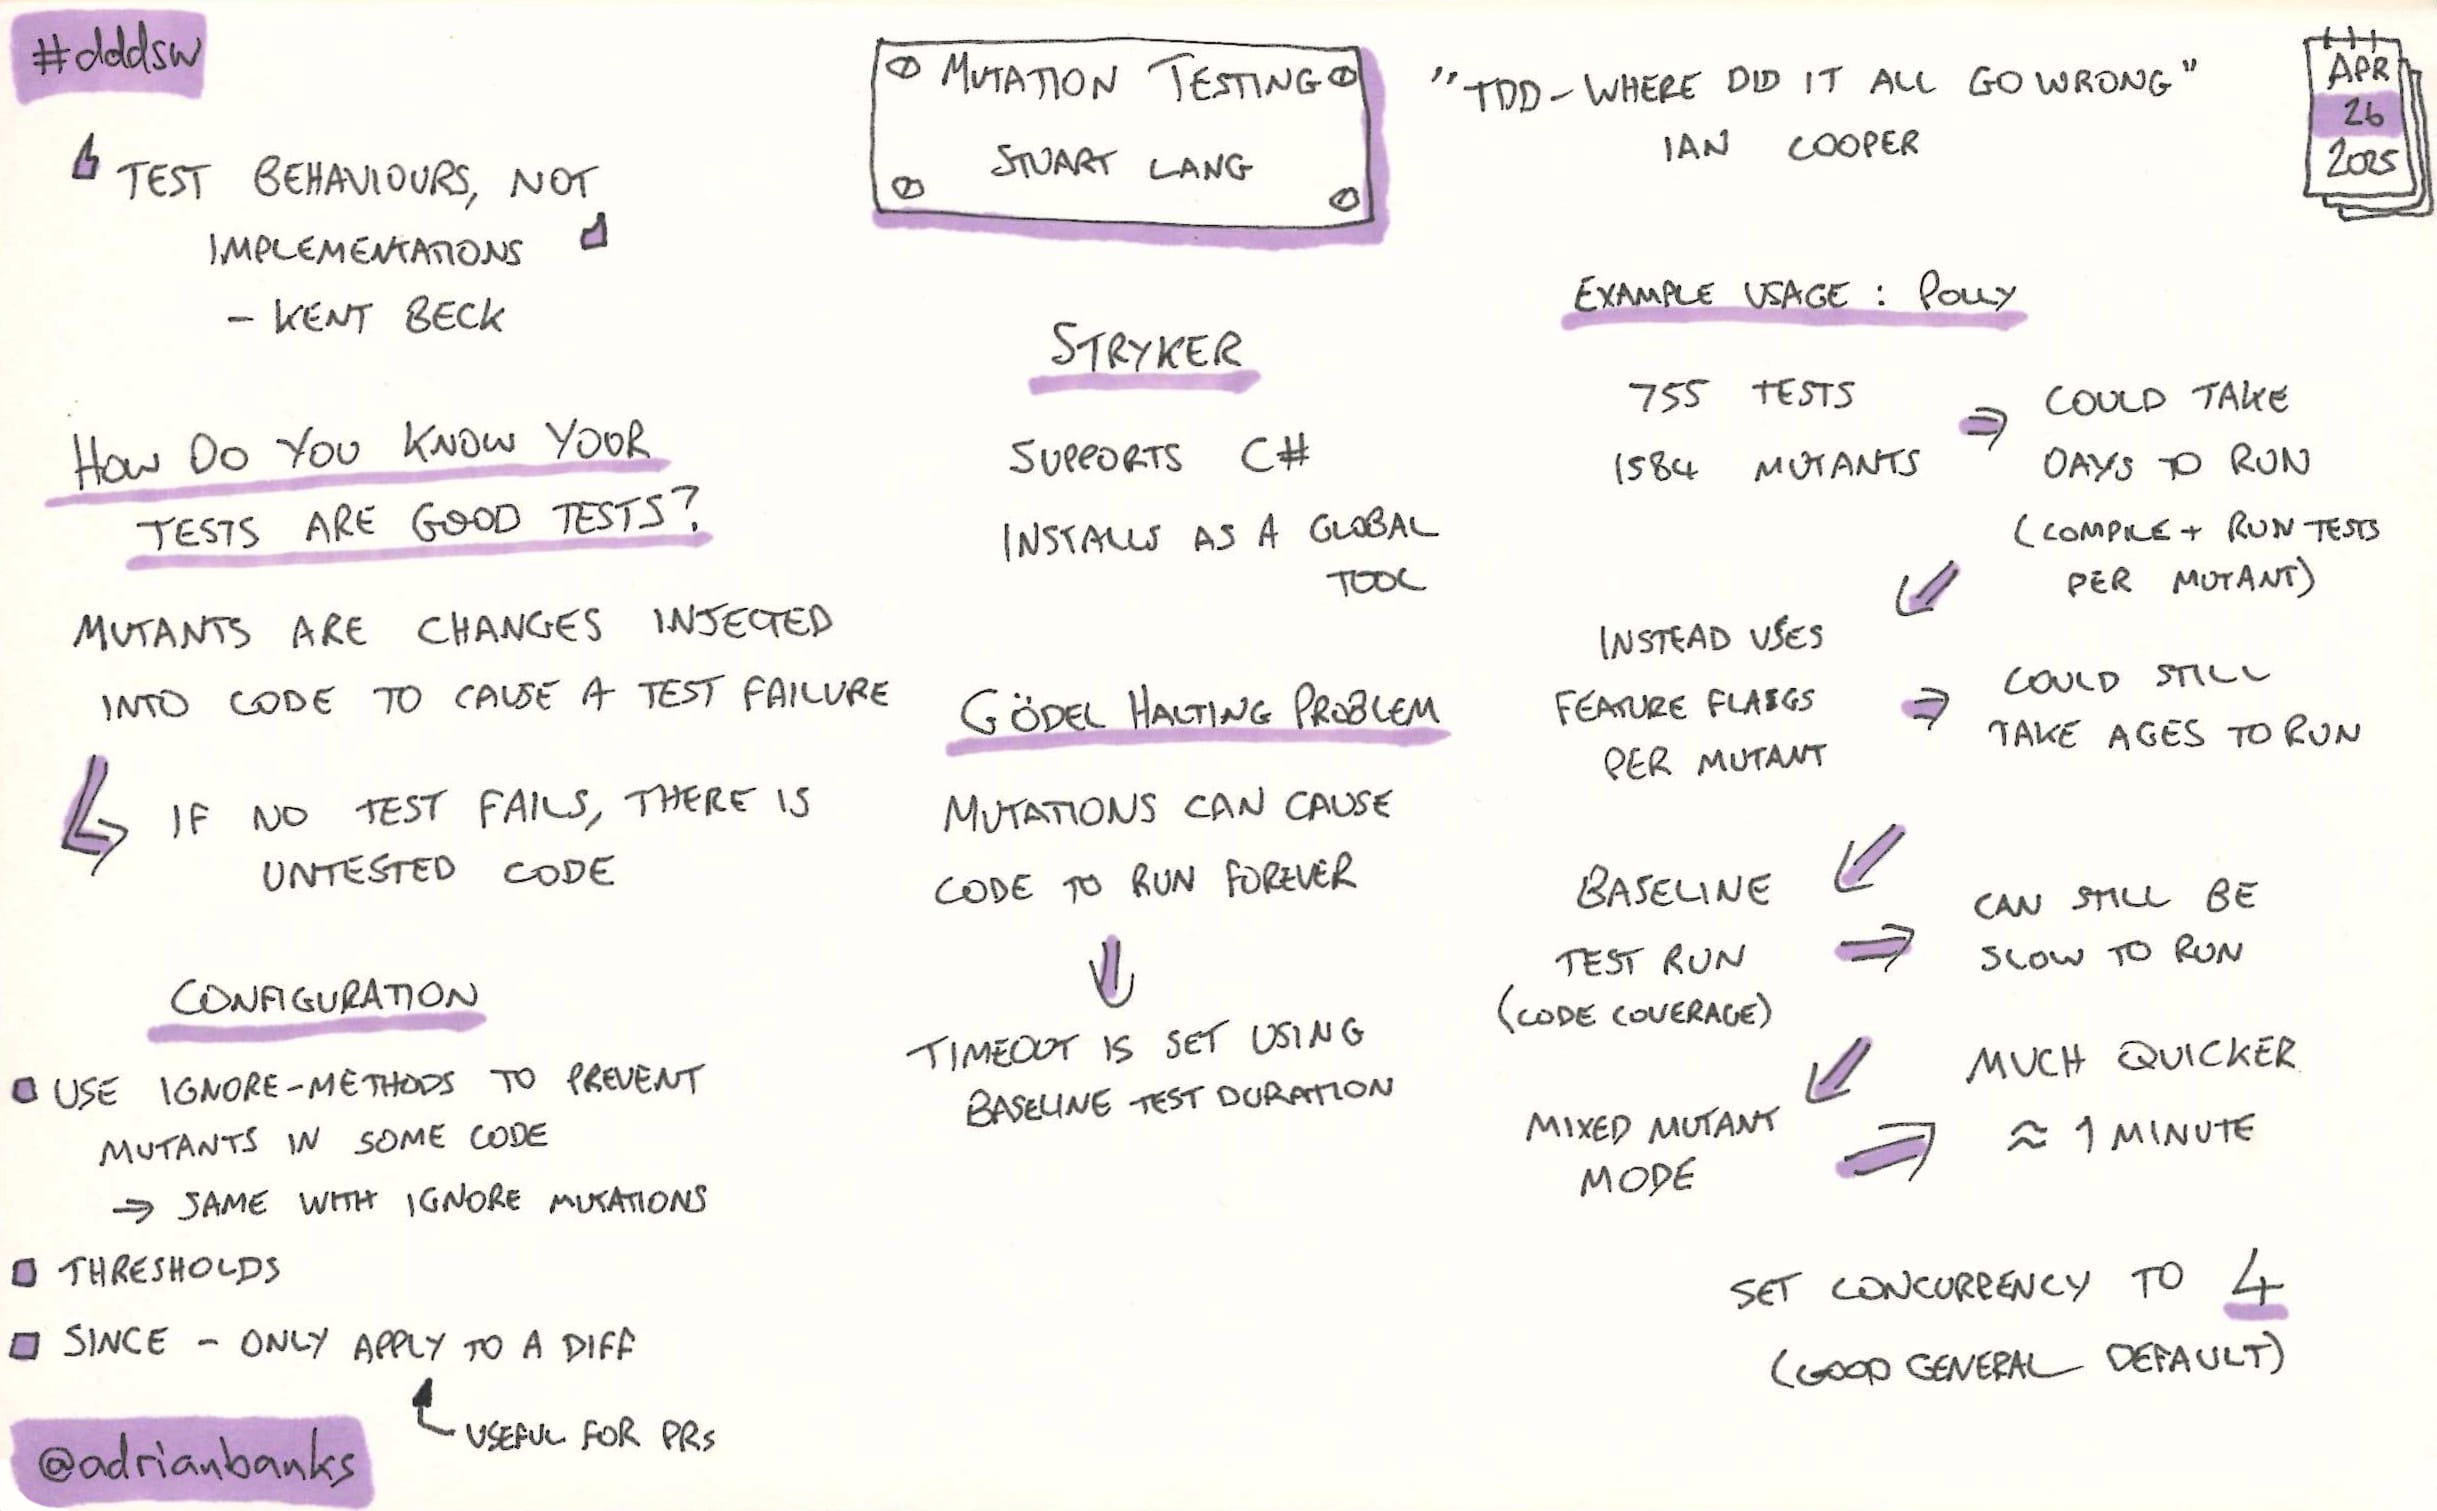 #dddsw
MUTATION TESTING
STUART LANG
"TDD - WHERE DID IT ALL GO WRONG"
IAN COOPER
APR
26
2025
TEST BEHAVIOURS, NOT
IMPLEMENTATIONS
- KENT BECK
HOW DO YOU KNOW YOUR
TESTS ARE GOOD TESTS?
MUTANTS ARE CHANGES INJECTED
INTO CODE TO CAUSE A TEST FAILURE
IF NO TEST FAILS, THERE IS
UNTESTED CODE
CONFIGURATION
USE IGNORE-METHODS TO PREVENT
MUTANTS IN SOME CODE
⇒ SAME WITH IGNORE MUTATIONS
THRESHOLDS
SINCE - ONLY APPLY TO A DIFF
USEFUL FOR PRs
@adrianbanks
STRYKER
SUPPORTS C#
INSTALLS AS A GLOBAL
TOOL
GÖDEL HALTING PROBLEM
MUTATIONS CAN CAUSE
CODE TO RUN FOREVER
TIMEOUT IS SET USING
BASELINE TEST DURATION
EXAMPLE USAGE : POLLY
755 TESTS
1584 MUTANTS
COULD TAKE
DAYS TO RUN
(COMPILE + RUN TESTS
PER MUTANT)
INSTEAD USES
FEATURE FLAGS
PER MUTANT
COULD STILL
TAKE AGES TO RUN
BASELINE
TEST RUN
(CODE COVERAGE)
CAN STILL BE
SLOW TO RUN
MIXED MUTANT
MODE
MUCH QUICKER
≈ 1 MINUTE
SET CONCURRENCY TO 4
(GOOD GENERAL DEFAULT)